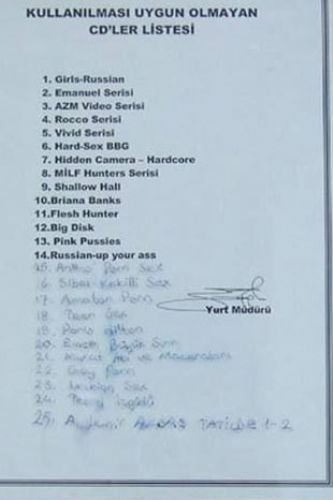 KULLANILMASI UYGUN OLMAYAN
CD'LER LİSTESİ
1. Girls-Russian
2. Emanuel Serisi
3. AZM Video Serisi
4. Rocco Serisi
5. Vivid Serisi
6. Hard-Sex BBG
7. Hidden Camera – Hardcore
8. MİLF Hunters Serisi
9. Shallow Hall
10.Briana Banks
11.Flesh Hunter
12.Big Disk
13. Pink Pussies
14.Russian-up your ass
15. Porn Sex
16. Sibel Kekilli Sex
17. Amatör Porn
18. Teen Sex
19. Paris Hilton
20.
21. ve Maceraları
22. Gay Porn
23. Lesbian Sex
24.
25. TATİLDE 1-2
Yurt Müdürü